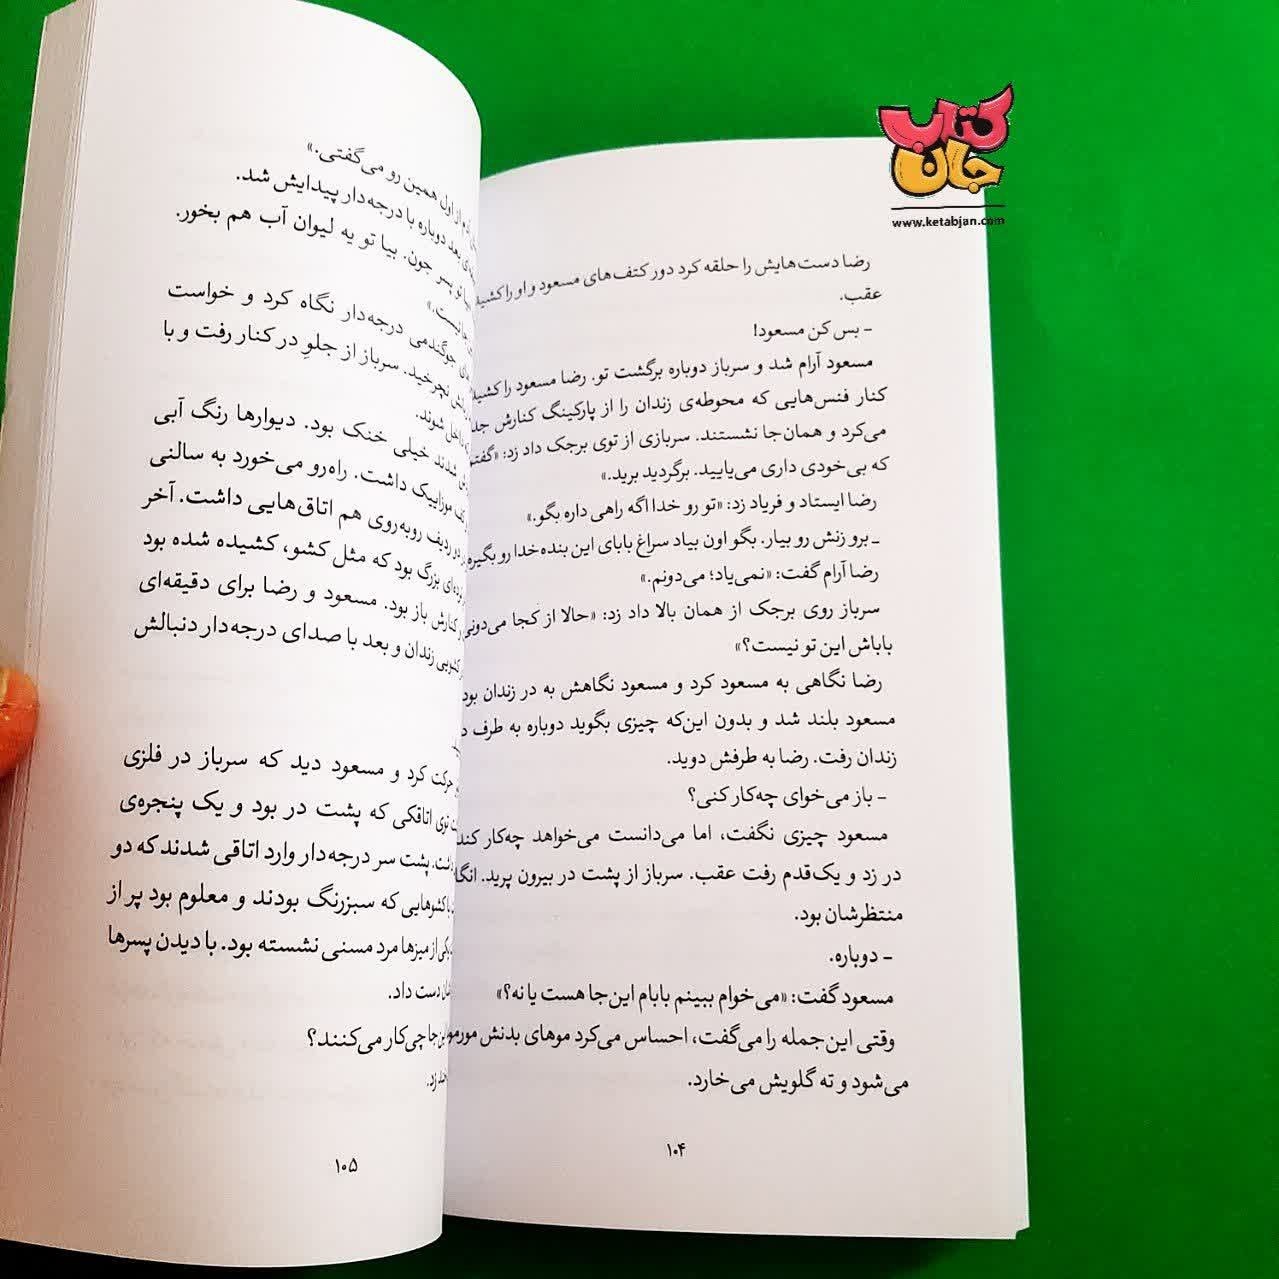 کتاب
جان
www.ketabjan.com
رضا دست‌هایش را حلقه کرد دور کتف‌های مسعود و او را کشید
عقب.
- بس کن مسعود!
مسعود آرام شد و سرباز دوباره برگشت تو. رضا مسعود را کشید
کنار فنس‌هایی که محوطه‌ی زندان را از پارکینگ کنارش جدا
می‌کرد و همان‌جا نشستند. سربازی از توی برجک داد زد: «گفتم
که بی‌خودی داری می‌یایید. برگردید برید.»
رضا ایستاد و فریاد زد: «تو رو خدا اگه راهی داره بگو.»
- برو زنش رو بیار. بگو اون بیاد سراغ بابای این بنده‌خدا رو بگیره
رضا آرام گفت: «نمی‌یاد؛ می‌دونم.»
سرباز روی برجک از همان بالا داد زد: «حالا از کجا می‌دونی
باباش این تو نیست؟»
رضا نگاهی به مسعود کرد و مسعود نگاهش به در زندان بود
مسعود بلند شد و بدون این‌که چیزی بگوید دوباره به طرف
زندان رفت. رضا به طرفش دوید.
- باز می‌خوای چه‌کار کنی؟
مسعود چیزی نگفت، اما می‌دانست می‌خواهد چه‌کار کند
در زد و یک‌قدم رفت عقب. سرباز از پشت در بیرون پرید.
منتظرشان بود.
- دوباره.
مسعود گفت: «می‌خوام ببینم بابام این‌جا هست یا نه؟»
وقتی این جمله را می‌گفت، احساس می‌کرد موهای بدنش
می‌شود و ته گلویش می‌خارد.
۱۰۴
از اول همین رو می‌گفتی.»
بعد دوباره با درجه‌دار پیدایش شد.
تو پسر جون. بیا تو یه لیوان آب هم بخور.
جوگندمی درجه‌دار نگاه کرد و خواست
نچرخید. سرباز از جلوِ در کنار رفت و با
داخل شوند.
شدند خیلی خنک بود. دیوارها رنگ آبی
کف موزاییک داشت. راه‌رو می‌خورد به سالنی
دو ردیف روبه‌روی هم اتاق‌هایی داشت. آخر
بزرگ بود که مثل کشو، کشیده شده بود
کنارش باز بود. مسعود و رضا برای دقیقه‌ای
زندان و بعد با صدای درجه‌دار دنبالش
حرکت کرد و مسعود دید که سرباز در فلزی
توی اتاقکی که پشت در بود و یک پنجره‌ی
پشت سر درجه‌دار وارد اتاقی شدند که دو
با کشوهایی که سبزرنگ بودند و معلوم بود پر از
یکی از میزها مرد مسنی نشسته بود. با دیدن پسرها
دست داد.
چی‌کار می‌کنند؟
زد.
۱۰۵